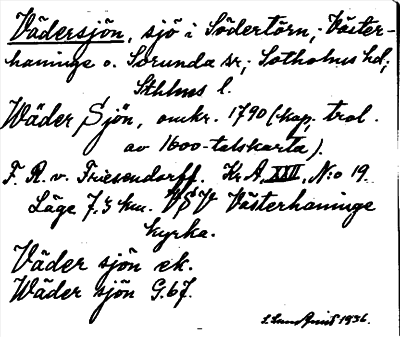 Vädersjön, sjö i Södertörn, Väster-
haninge o. Sorunda sr; Sotholms hd;
Sthlms l.
Wäder Sjön, omkr. 1790 (kop. trol.
av 1600-talskarta).
F. R. v. Friesendorff. Kr. A. XXII, N:o 19.
Läge 7,3 km. VSV Västerhaninge
kyrka.
Väder sjön ek.
Wäder sjön G.67.
S. Lundquist 1936.